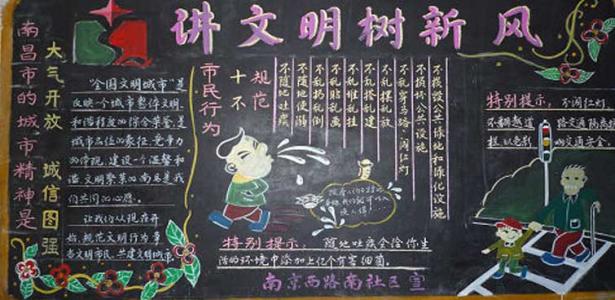 讲文明树新风
南昌市的城市精神是
大气开放 诚信图强
"全国文明城市"是
反映一个城市整体文明
和谐程度的综合荣誉是
城市品位的象征,竞争力
的体现,建设一个温馨和
谐文明繁荣的南昌是我
们共同的心愿。
让我们从现在开
始,规范文明行为争
当文明市民,共建文明城市
市民行为
十不
规范
不随地吐痰
不随地便溺
不乱扔乱倒
不乱贴乱画
不乱堆乱挂
不乱搭乱建
不乱摆乱放
不乱穿马路 闯红灯
不损坏公共设施
不损毁公共绿地和绿化设施
特别提示:随地吐痰会给你生
活的环境中添加上亿个有害细菌。
特别提示,不闯红灯
不翻越道路交通隔离
栏 以免
南京西路南社区宣